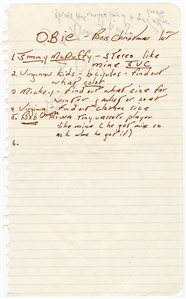 OBie - Bob's Christmas list
1. Jimmy McDuffy - stereo like
mine JVC
2. Virginias kids - bicycles - find out
what color
3. Mickey - find out what size for
winter
4. Virginia - find out clothes size
5. Bob - AIWA Tiny cassete player
like mine (he got me so
ask where he got it)
6.